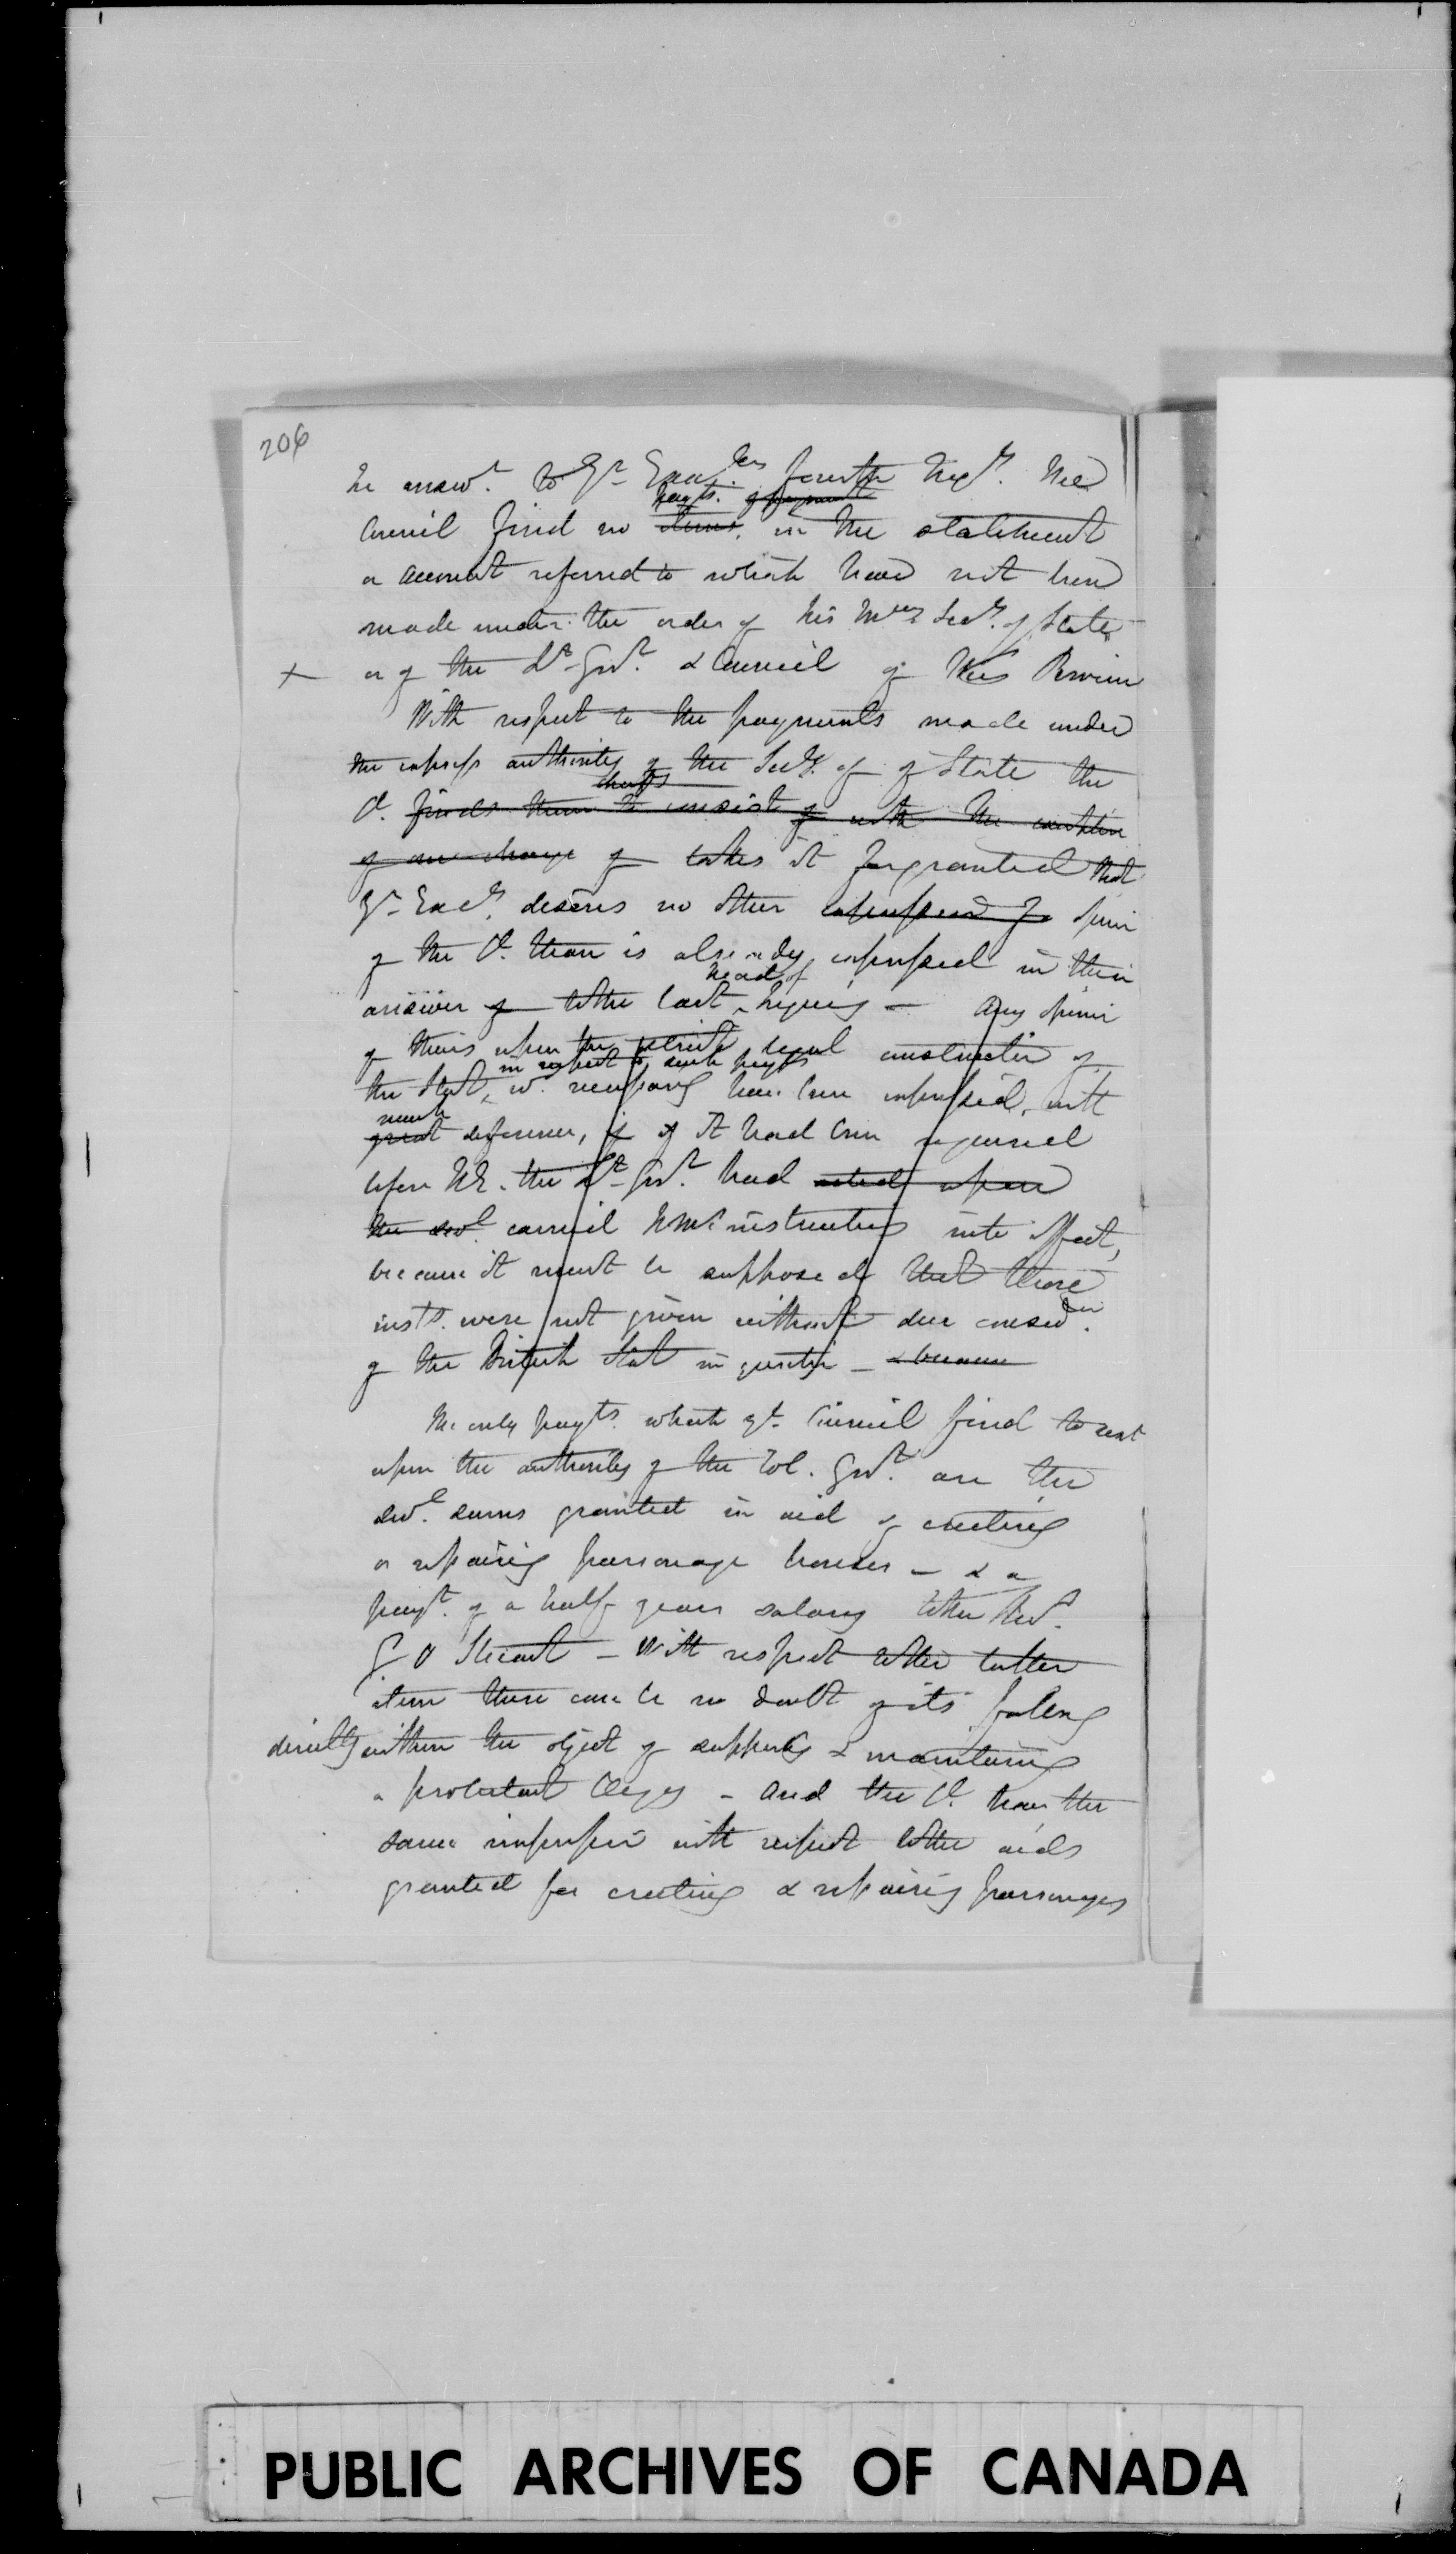 206
In answr. to Yr. Exclcys fourth Inqy. the
payts. of payment
Council find no items, in the statement
or account referred to which have not been
made under the order of his Mys Secy. of State
+ or of the Lt. Govr. & Council of this Province
With respect to the payments made under
the express authority of the Secy. of of State the
chiefly
C. finds them to consist of with the exception
of one charge of takes it for granted that
Yr. Excy. desires no other expression of opinion
of the C. than is already expressed in their
head of
answer of to the last Inquiry — Any opinion
of theirs upon the strict legal construction of
in respect to such payts
the Stat, wd. necessary have been expressed, with
much
great deference, if of it had been required
before HE. the Lt. Govr. had acted upon
the sevl. carried HMs instructions into effect,
because it must be supposed that those
insts. were not given without due consideron.
of the British Stat in question — & because
The only payts. which yr. Council find to rest
upon the authority of the Col. Govt. are the
sevl. sums granted in aid of erecting
or repairing parsonage houses — & a
payt. of a half years salary to the Revd.
G O Stuart — With respect to the latter
item there can be no doubt of its falling
directly within the object of supportg & maintaining
a protestant Clergy — And the C. have the
same impression with respect to the aids
granted for erecting & repairing parsonages
PUBLIC ARCHIVES OF CANADA